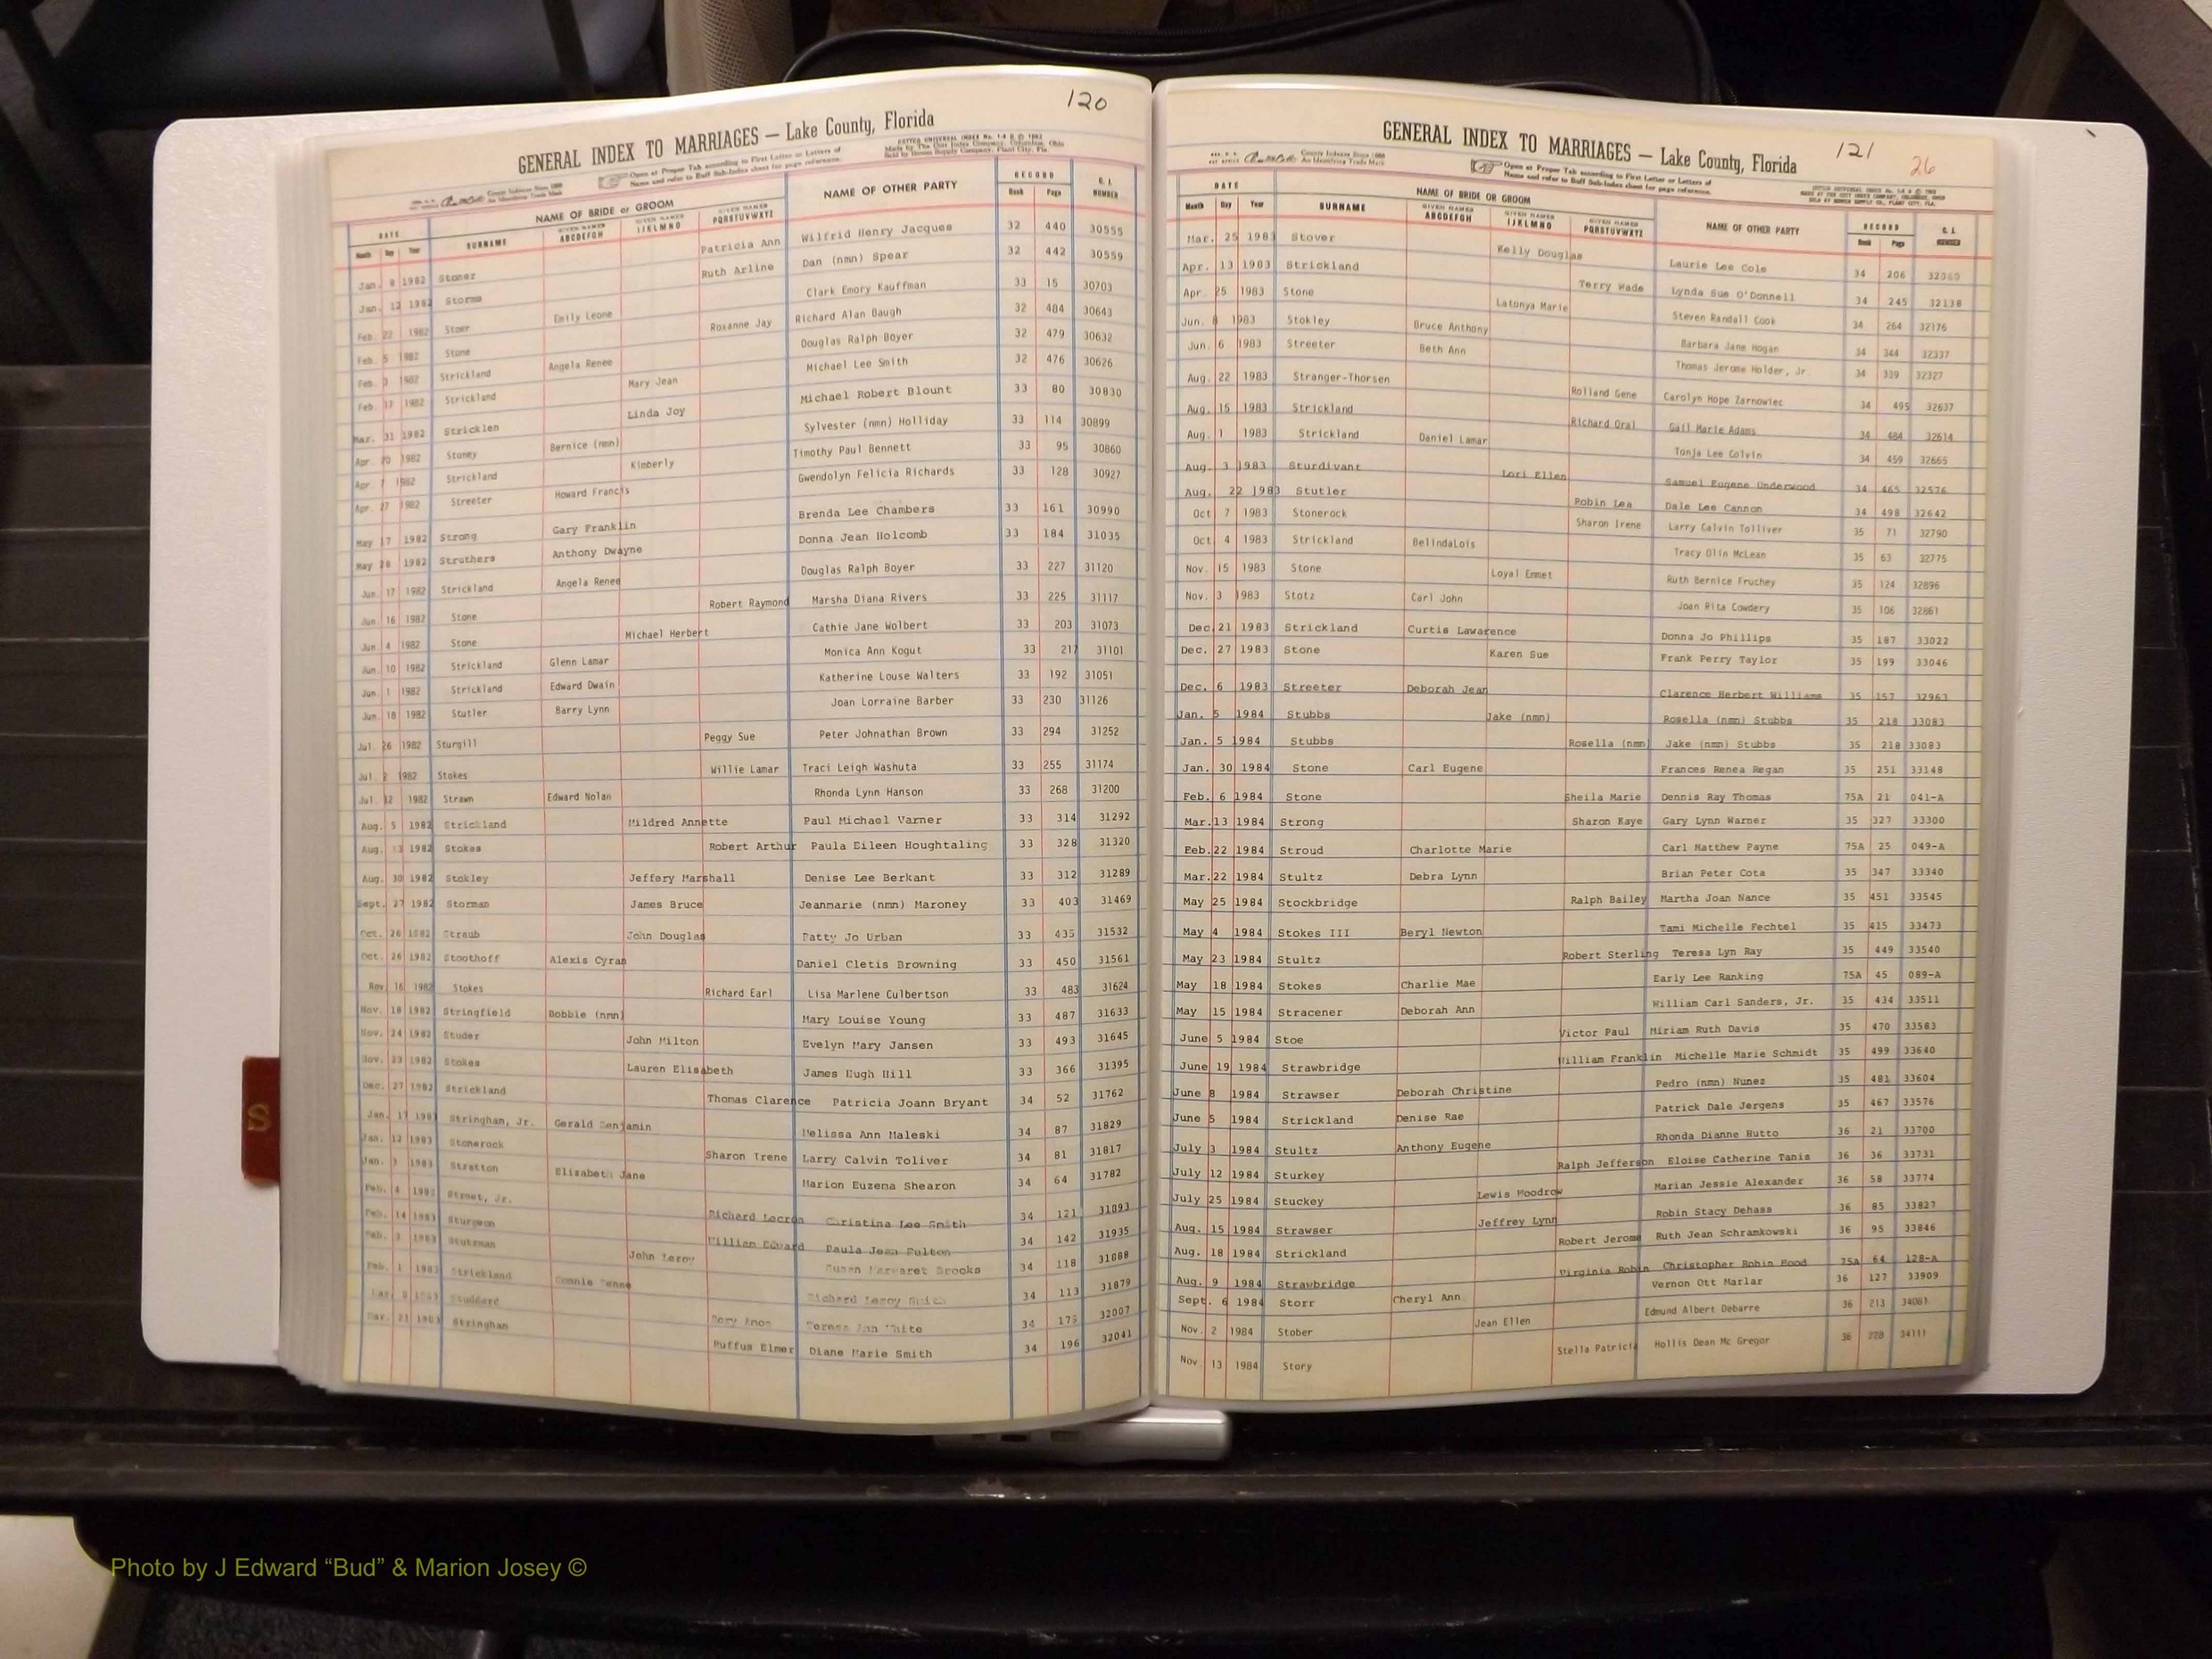 120
GENERAL INDEX TO MARRIAGES — Lake County, Florida
Open at Proper Tab according to First Letter or Letters of
Name and refer to Buff Sub-Index sheet for page reference.
DATE NAME OF BRIDE or GROOM NAME OF OTHER PARTY RECORD C. I. NUMBER
Month Day Year SURNAME GIVEN NAMES ABCDEFGH GIVEN NAMES IJKLMNO GIVEN NAMES PQRSTUVWXYZ Book Page
Jan. 8 1982 Stoner Patricia Ann Wilfrid Henry Jacques 32 440 30555
Jan. 12 1982 Storms Ruth Arline Dan (nmn) Spear 32 442 30559
Feb. 22 1982 Stoer Emily Leone Clark Emory Kauffman 33 15 30703
Feb. 5 1982 Stone Roxanne Jay Richard Alan Baugh 32 484 30643
Feb. 3 1982 Strickland Angela Renee Douglas Ralph Boyer 32 479 30632
Feb. 17 1982 Strickland Mary Jean Michael Lee Smith 32 476 30626
Mar. 31 1982 Stricklen Linda Joy Michael Robert Blount 33 80 30830
Apr. 20 1982 Stoney Bernice (nmn) Sylvester (nmn) Holliday 33 114 30899
Apr. 7 1982 Strickland Kimberly Timothy Paul Bennett 33 95 30860
Apr. 27 1982 Streeter Howard Francis Gwendolyn Felicia Richards 33 128 30927
May 17 1982 Strong Gary Franklin Brenda Lee Chambers 33 161 30990
May 28 1982 Struthers Anthony Dwayne Donna Jean Holcomb 33 184 31035
Jun. 17 1982 Strickland Angela Renee Douglas Ralph Boyer 33 227 31120
Jun. 16 1982 Stone Robert Raymond Marsha Diana Rivers 33 225 31117
Jun. 4 1982 Stone Michael Herbert Cathie Jane Wolbert 33 203 31073
Jun. 10 1982 Strickland Glenn Lamar Monica Ann Kogut 33 217 31101
Jun. 1 1982 Strickland Edward Dwain Katherine Louse Walters 33 192 31051
Jun. 18 1982 Stutler Barry Lynn Joan Lorraine Barber 33 230 31126
Jul. 26 1982 Sturgill Peggy Sue Peter Johnathan Brown 33 294 31252
Jul. 2 1982 Stokes Willie Lamar Traci Leigh Washuta 33 255 31174
Jul. 12 1982 Strawn Edward Nolan Rhonda Lynn Hanson 33 268 31200
Aug. 5 1982 Strickland Mildred Annette Paul Michael Varner 33 314 31292
Aug. 13 1982 Stokes Robert Arthur Paula Eileen Houghtaling 33 328 31320
Aug. 30 1982 Stokley Jeffery Marshall Denise Lee Berkant 33 312 31289
Sept. 27 1982 Storman James Bruce Jeanmarie (nmn) Maroney 33 403 31469
Oct. 26 1982 Straub John Douglas Patty Jo Urban 33 435 31532
Oct. 26 1982 Stoothoff Alexis Cyran Daniel Cletis Browning 33 450 31561
Nov 16 1982 Stokes Richard Earl Lisa Marlene Culbertson 33 483 31624
Nov. 18 1982 Stringfield Bobbie (nmn) Mary Louise Young 33 487 31633
Nov. 24 1982 Studer John Milton Evelyn Mary Jansen 33 493 31645
Nov. 23 1982 Stokes Lauren Elisabeth James Hugh Hill 33 366 31395
Dec. 27 1982 Strickland Thomas Clarence Patricia Joann Bryant 34 52 31762
Jan. 17 1983 Stringham, Jr. Gerald Benjamin Melissa Ann Maleski 34 87 31829
Jan. 12 1983 Stonerock Sharon Irene Larry Calvin Toliver 34 81 31817
Jan. 3 1983 Stratton Elisabeth Jane Marion Euzema Shearon 34 64 31782
Feb. 4 1983 Street, Jr. Richard Christina Lee Smith 34 121 31893
Feb. 14 1983 Sturgeon William Edward Paula Jean Fulton 34 142 31935
Feb. 3 1983 Stutzman John Leroy Susan Margaret Brooks 34 118 31888
Feb. 1 1983 Strickland Connie Richard Leroy Smith 34 113 31879
Mar. 9 1983 Studdard Teresa Ann White 34 179 32007
Mar. 21 1983 Stringham Ruffus Elmer Diane Marie Smith 34 196 32041
121
26
GENERAL INDEX TO MARRIAGES — Lake County, Florida
Open at Proper Tab according to First Letter or Letters of
Name and refer to Buff Sub-Index sheet for page reference.
DATE NAME OF BRIDE OR GROOM NAME OF OTHER PARTY RECORD C. I. NUMBER
Month Day Year SURNAME GIVEN NAMES ABCDEFGH GIVEN NAMES IJKLMNO GIVEN NAMES PQRSTUVWXYZ Book Page
Mar. 25 1983 Stover Kelly Douglas Laurie Lee Cole 34 206
Apr. 13 1983 Strickland Terry Wade Lynda Sue O'Donnell 34 245 32138
Apr. 25 1983 Stone Latonya Marie Steven Randall Cook 34 264 32176
Jun. 8 1983 Stokley Bruce Anthony Barbara Jane Hogan 34 344 32337
Jun. 6 1983 Streeter Beth Ann Thomas Jerome Holder, Jr. 34 339 32327
Aug. 22 1983 Stranger-Thorsen Rolland Gene Carolyn Hope Zarnowiec 34 495 32637
Aug. 15 1983 Strickland Richard Oral Gail Marie Adams 34 484 32614
Aug. 1 1983 Strickland Daniel Lamar Tonja Lee Colvin 34 459 32665
Aug. 3 1983 Sturdivant Lori Ellen Samuel Eugene Underwood 34 465 32576
Aug. 22 1983 Stutler Robin Lea Dale Lee Cannon 34 498 32642
Oct 7 1983 Stonerock Sharon Irene Larry Calvin Tolliver 35 71 32790
Oct 4 1983 Strickland BelindaLois Tracy Olin McLean 35 63 32775
Nov. 15 1983 Stone Loyal Emmet Ruth Bernice Fruchey 35 124 32896
Nov. 3 1983 Stotz Carl John Joan Rita Cowdery 35 106 32861
Dec 21 1983 Strickland Curtis Lawarence Donna Jo Phillips 35 187 33022
Dec. 27 1983 Stone Karen Sue Frank Perry Taylor 35 199 33046
Dec. 6 1983 Streeter Deborah Jean Clarence Herbert Williams 35 157 32963
Jan. 5 1984 Stubbs Jake (nmn) Rosella (nmn) Stubbs 35 218 33083
Jan. 5 1984 Stubbs Rosella (nmn) Jake (nmn) Stubbs 35 218 33083
Jan. 30 1984 Stone Carl Eugene Frances Renea Regan 35 251 33148
Feb. 6 1984 Stone Sheila Marie Dennis Ray Thomas 75A 21 041-A
Mar. 13 1984 Strong Sharon Kaye Gary Lynn Warner 35 327 33300
Feb. 22 1984 Stroud Charlotte Marie Carl Matthew Payne 75A 25 049-A
Mar. 22 1984 Stultz Debra Lynn Brian Peter Cota 35 347 33340
May 25 1984 Stockbridge Ralph Bailey Martha Joan Nance 35 451 33545
May 4 1984 Stokes III Beryl Newton Tami Michelle Fechtel 35 415 33473
May 23 1984 Stultz Robert Sterling Teresa Lyn Ray 35 449 33540
May 18 1984 Stokes Charlie Mae Early Lee Ranking 75A 45 089-A
May 15 1984 Stracener Deborah Ann William Carl Sanders, Jr. 35 434 33511
June 5 1984 Stoe Victor Paul Miriam Ruth Davis 35 470 33583
June 19 1984 Strawbridge William Franklin Michelle Marie Schmidt 35 499 33640
June 8 1984 Strawser Deborah Christine Pedro (nmn) Nunez 35 481 33604
June 5 1984 Strickland Denise Rae Patrick Dale Jergens 35 467 33576
July 3 1984 Stultz Anthony Eugene Rhonda Dianne Hutto 36 21 33700
July 12 1984 Sturkey Ralph Jefferson Eloise Catherine Tanis 36 36 33731
July 25 1984 Stuckey Lewis Woodrow Marian Jessie Alexander 36 58 33774
Aug. 15 1984 Strawser Jeffrey Lynn Robin Stacy Dehass 36 85 33827
Aug. 18 1984 Strickland Robert Jerome Ruth Jean Schramkowski 36 95 33846
Aug. 9 1984 Strawbridge Virginia Robin Christopher Robin Hood 75A 64 128-A
Sept. 6 1984 Storr Cheryl Ann Vernon Ott Marlar 36 127 33909
Nov. 2 1984 Stober Jean Ellen Edmund Albert Debarre 36 213 34081
Nov. 13 1984 Story Stella Patricia Hollis Dean Mc Gregor 36 228 34111
S
Photo by J Edward “Bud” & Marion Josey ©